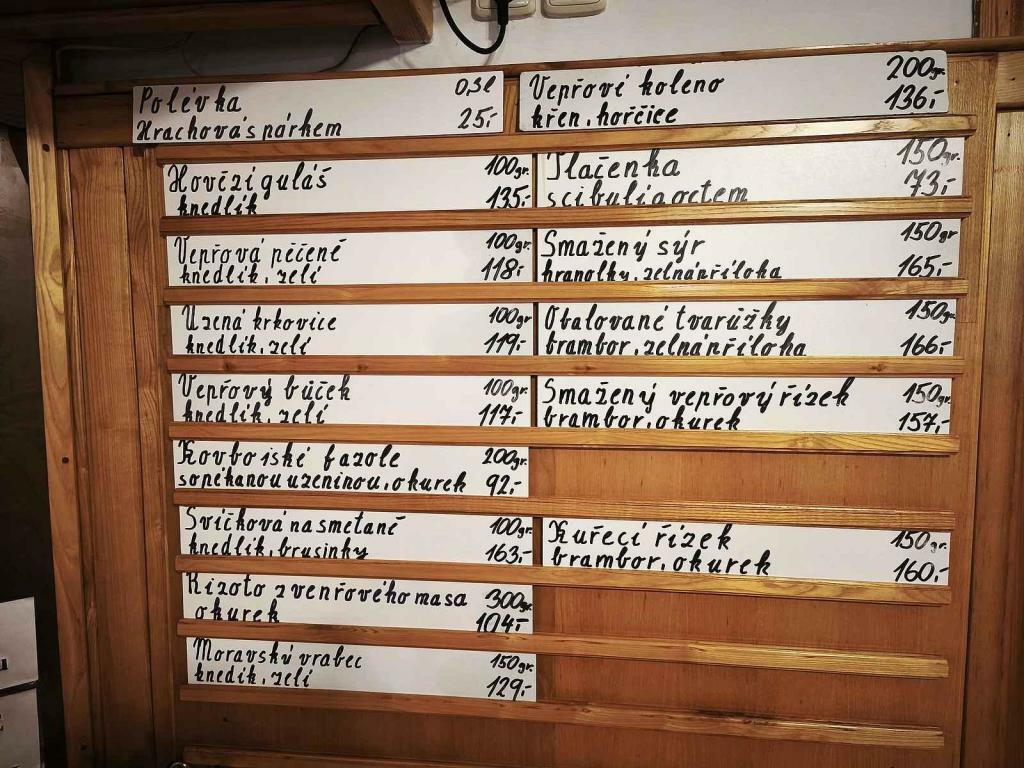 Polévka 0,3l
Hrachová s párkem 25,-
Hovězí guláš 100gr.
knedlík 135,-
Vepřová pečeně 100gr.
knedlík, zelí 118,-
Uzená krkovice 100gr
knedlík, zelí 119,-
Vepřový bůček 100gr.
knedlík, zelí 117,-
Kovbojské fazole 200gr.
s opékanou uzeninou, okurek 92,-
Svíčková na smetaně 100gr.
knedlík, brusinky 163,-
Rizoto z vepřového masa 300gr.
okurek 104,-
Moravský vrabec 150gr.
knedík, zelí 129,-
Vepřové koleno 200gr.
křen, hořčice 136,-
Tlačenka 150gr.
s cibulí a octem 73,-
Smažený sýr 150gr
hranolky, zelná příloha 165,-
Obalované tvarůžky 150gr.
brambor, zelná příloha 166,-
Smažený vepřový řízek 150gr.
brambor, okurek 157,-
Kuřecí řízek 150gr.
brambor, okurek 160,-